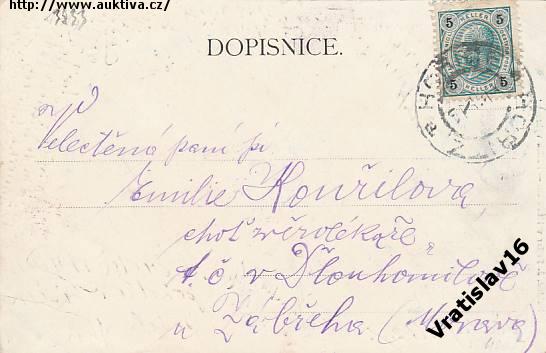 Zdroj: http://www.auktiva.cz/
DOPISNICE.
5 5
HELLER
5 5
Velectěná paní pí
Emilie Kouřilova
choť zvěrolékaře
t. č. v Dlouhomilově
u Zábřeha (Morava)
Vratislav16